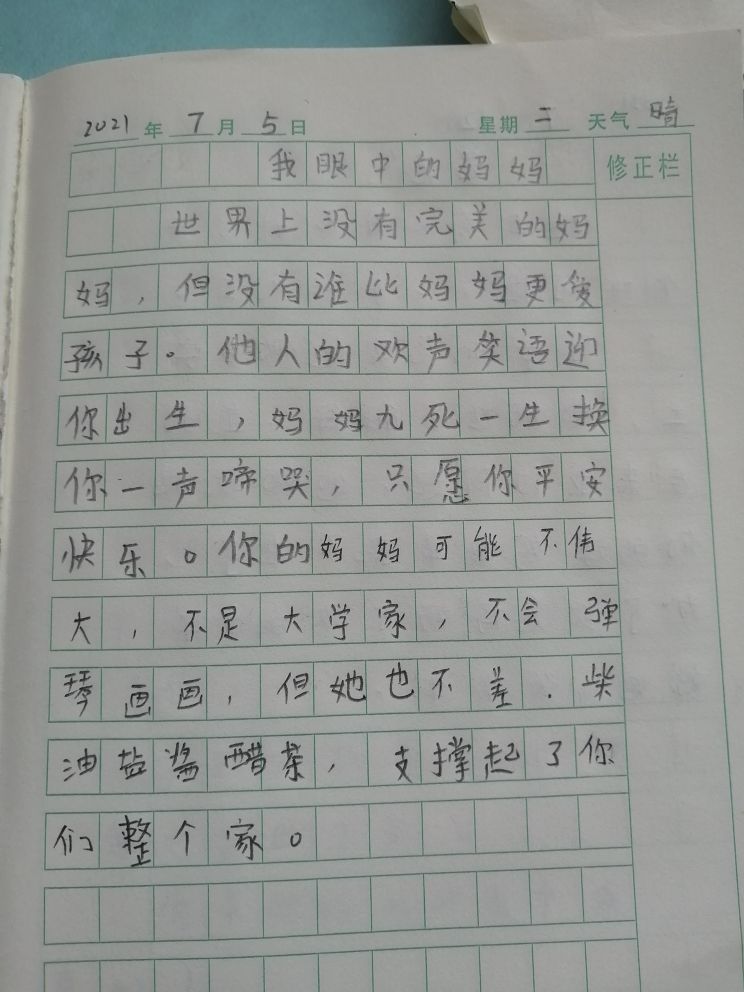 2021年7月5日 星期二 天气晴
我眼中的妈妈 修正栏
世界上没有完美的妈
妈，但没有谁比妈妈更爱
孩子。他人的欢声笑语迎
你出生，妈妈九死一生换
你一声啼哭，只愿你平安
快乐。你的妈妈可能不伟
大，不是大学家，不会弹
琴画画，但她也不差.柴
油盐酱醋茶，支撑起了你
们整个家。